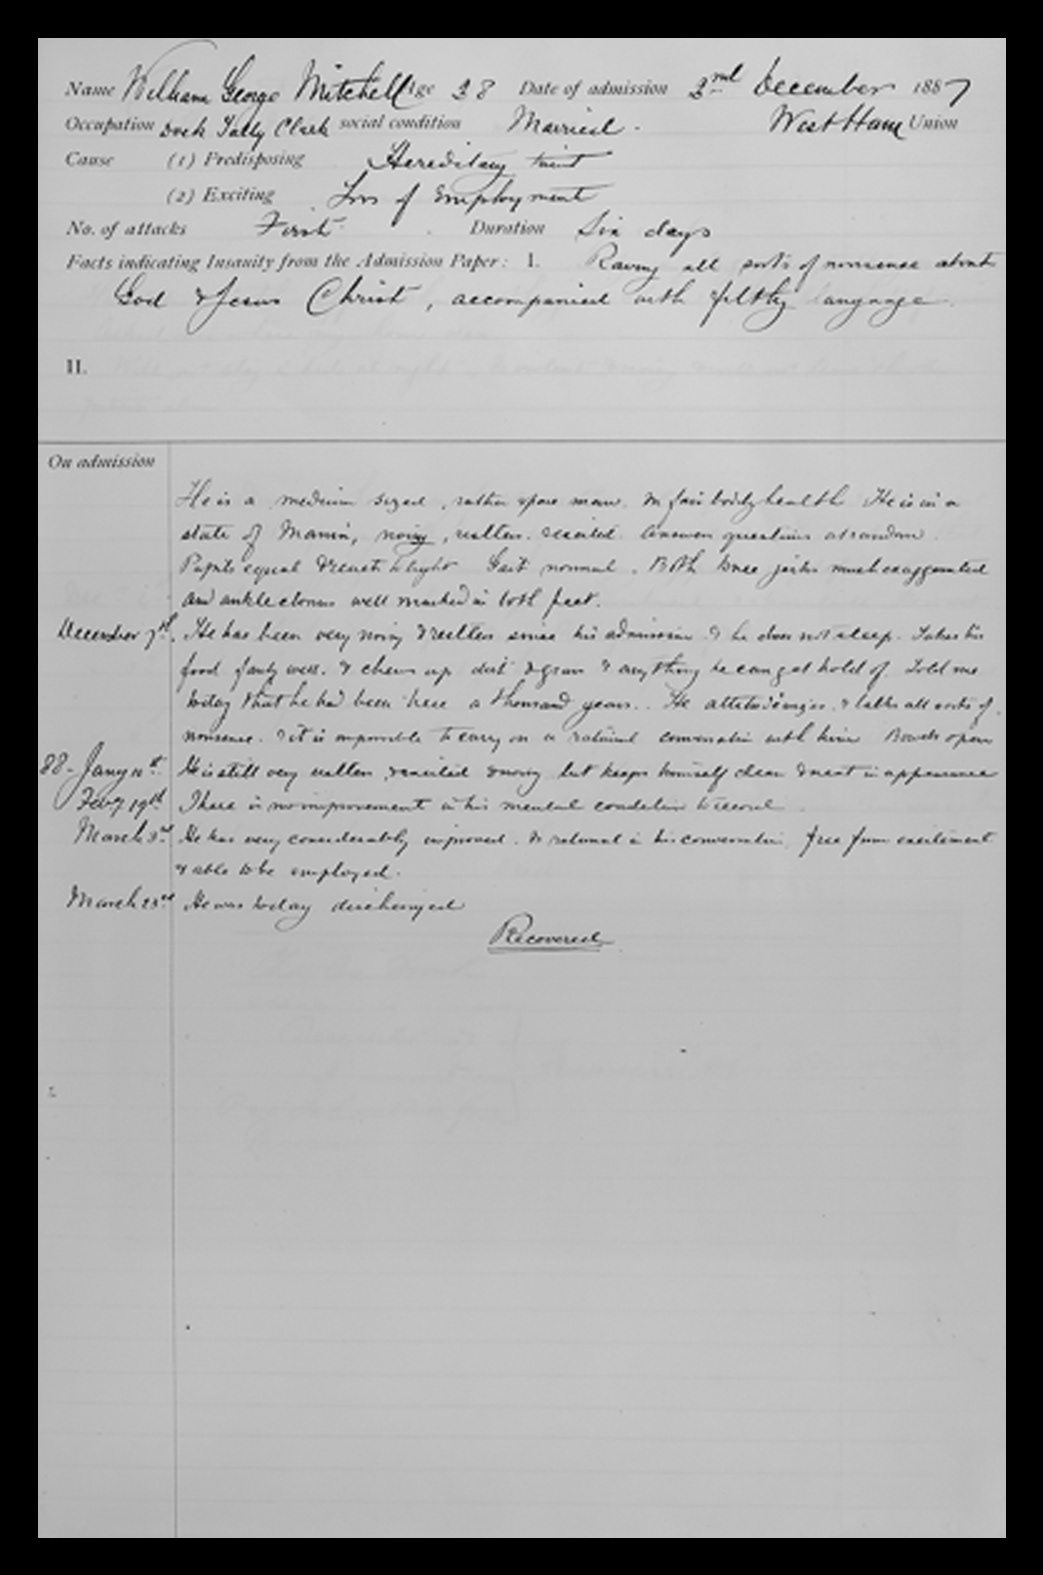 Name William George Mitchell Age 38 Date of admission 2nd December 1887
Occupation Dock Tally Clerk social condition Married. West Ham Union
Cause (1) Predisposing Hereditary taint
(2) Exciting Loss of Employment
No. of attacks First Duration Six days
Facts indicating Insanity from the Admission Paper: I. Raving all sorts of nonsense about
God & Jesus Christ, accompanied with filthy language.
II.
On admission
He is a medium sized, rather spare man. In fair bodily health He is in a
state of Mania, noisy, restless. excited. Answers questions at random.
Pupils equal & react to light Gait normal. Both knee jerks much exaggerated
and ankle clonus well marked in both feet.
December 7th. He has been very noisy & restless since his admission & he does not sleep. Takes his
food fairly well. & chews up dirt & grass & anything he can get hold of. Told me
today that he had been here a thousand years. He attitudinizes & talks all sorts of
nonsense. & it is impossible to carry on a rational conversation with him Bowels open
88 - Jany 10th He is still very restless, excited & noisy but keeps himself clean & neat in appearance
Feby 19th There is no improvement in his mental condition to record
March 3rd He has very considerably improved. Is rational in his conversation, free from excitement
& able to be employed.
March 23rd He was today discharged
Recovered